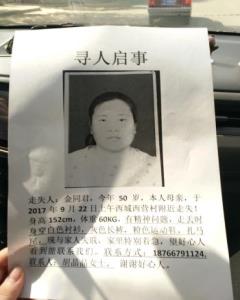 寻人启事
走失人：金同君，今年 50 岁，本人母亲，于
2017 年 9 月 22 日上午西城西营村附近走失！
身高 152cm，体重 60KG，有精神问题，走去时
身穿白色衬衫，灰色长裤，粉色运动鞋，扎马
尾，现与家人失联，家里特别着急，望好心人
看到能联系我们。联系方式：18766791124，
联系人：胡晶晶女士，谢谢好心人。